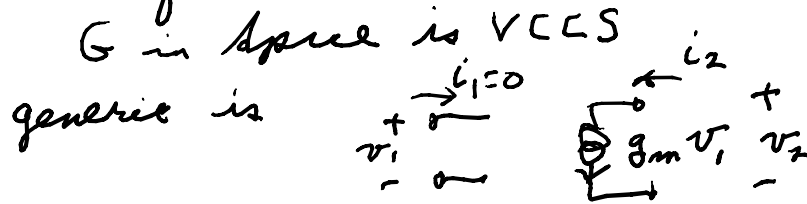 G in Spice is VCCS
generic is
i₁=0
i₂
+
v₁
-
gₘ v₁
+
v₂
-